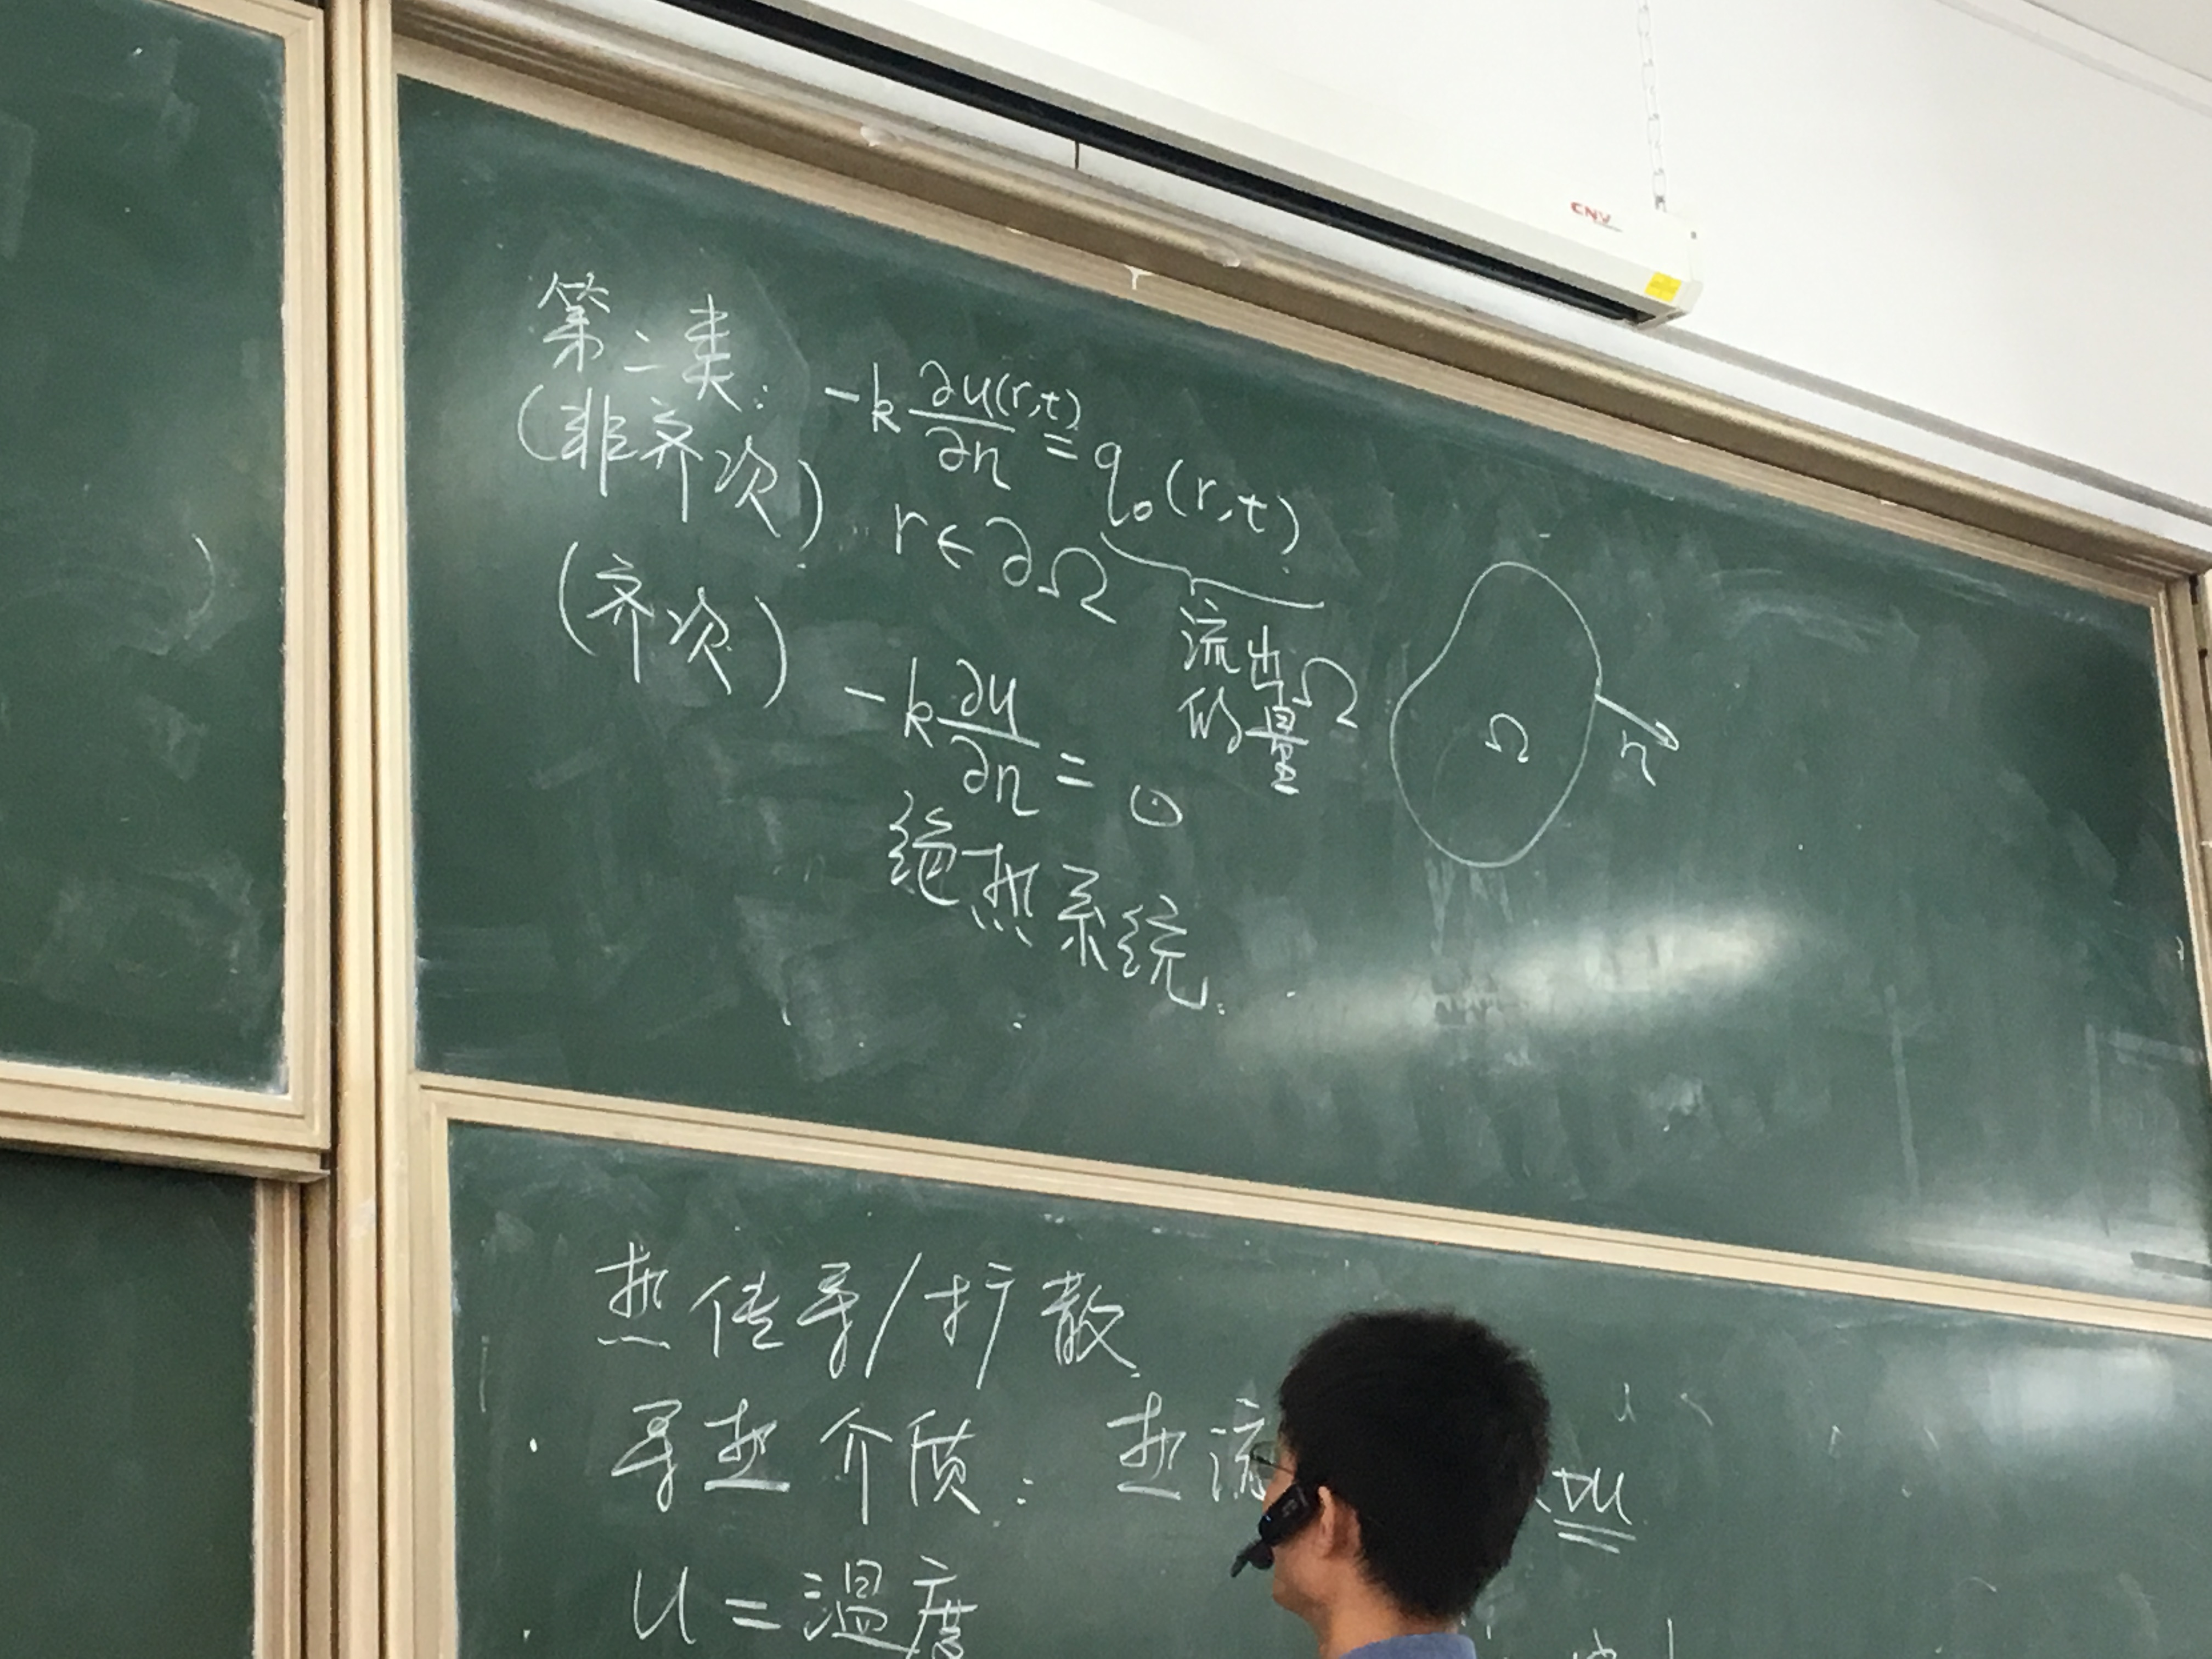 CNV
第二类: -k ∂u(r,t)/∂n = q₀(r,t)
(非齐次) r∈∂Ω
流出Ω
的量
(齐次) -k ∂u/∂n = 0
绝热系统.
Ω
n
热传导/扩散
导热介质: 热流 ∇u
u = 温度